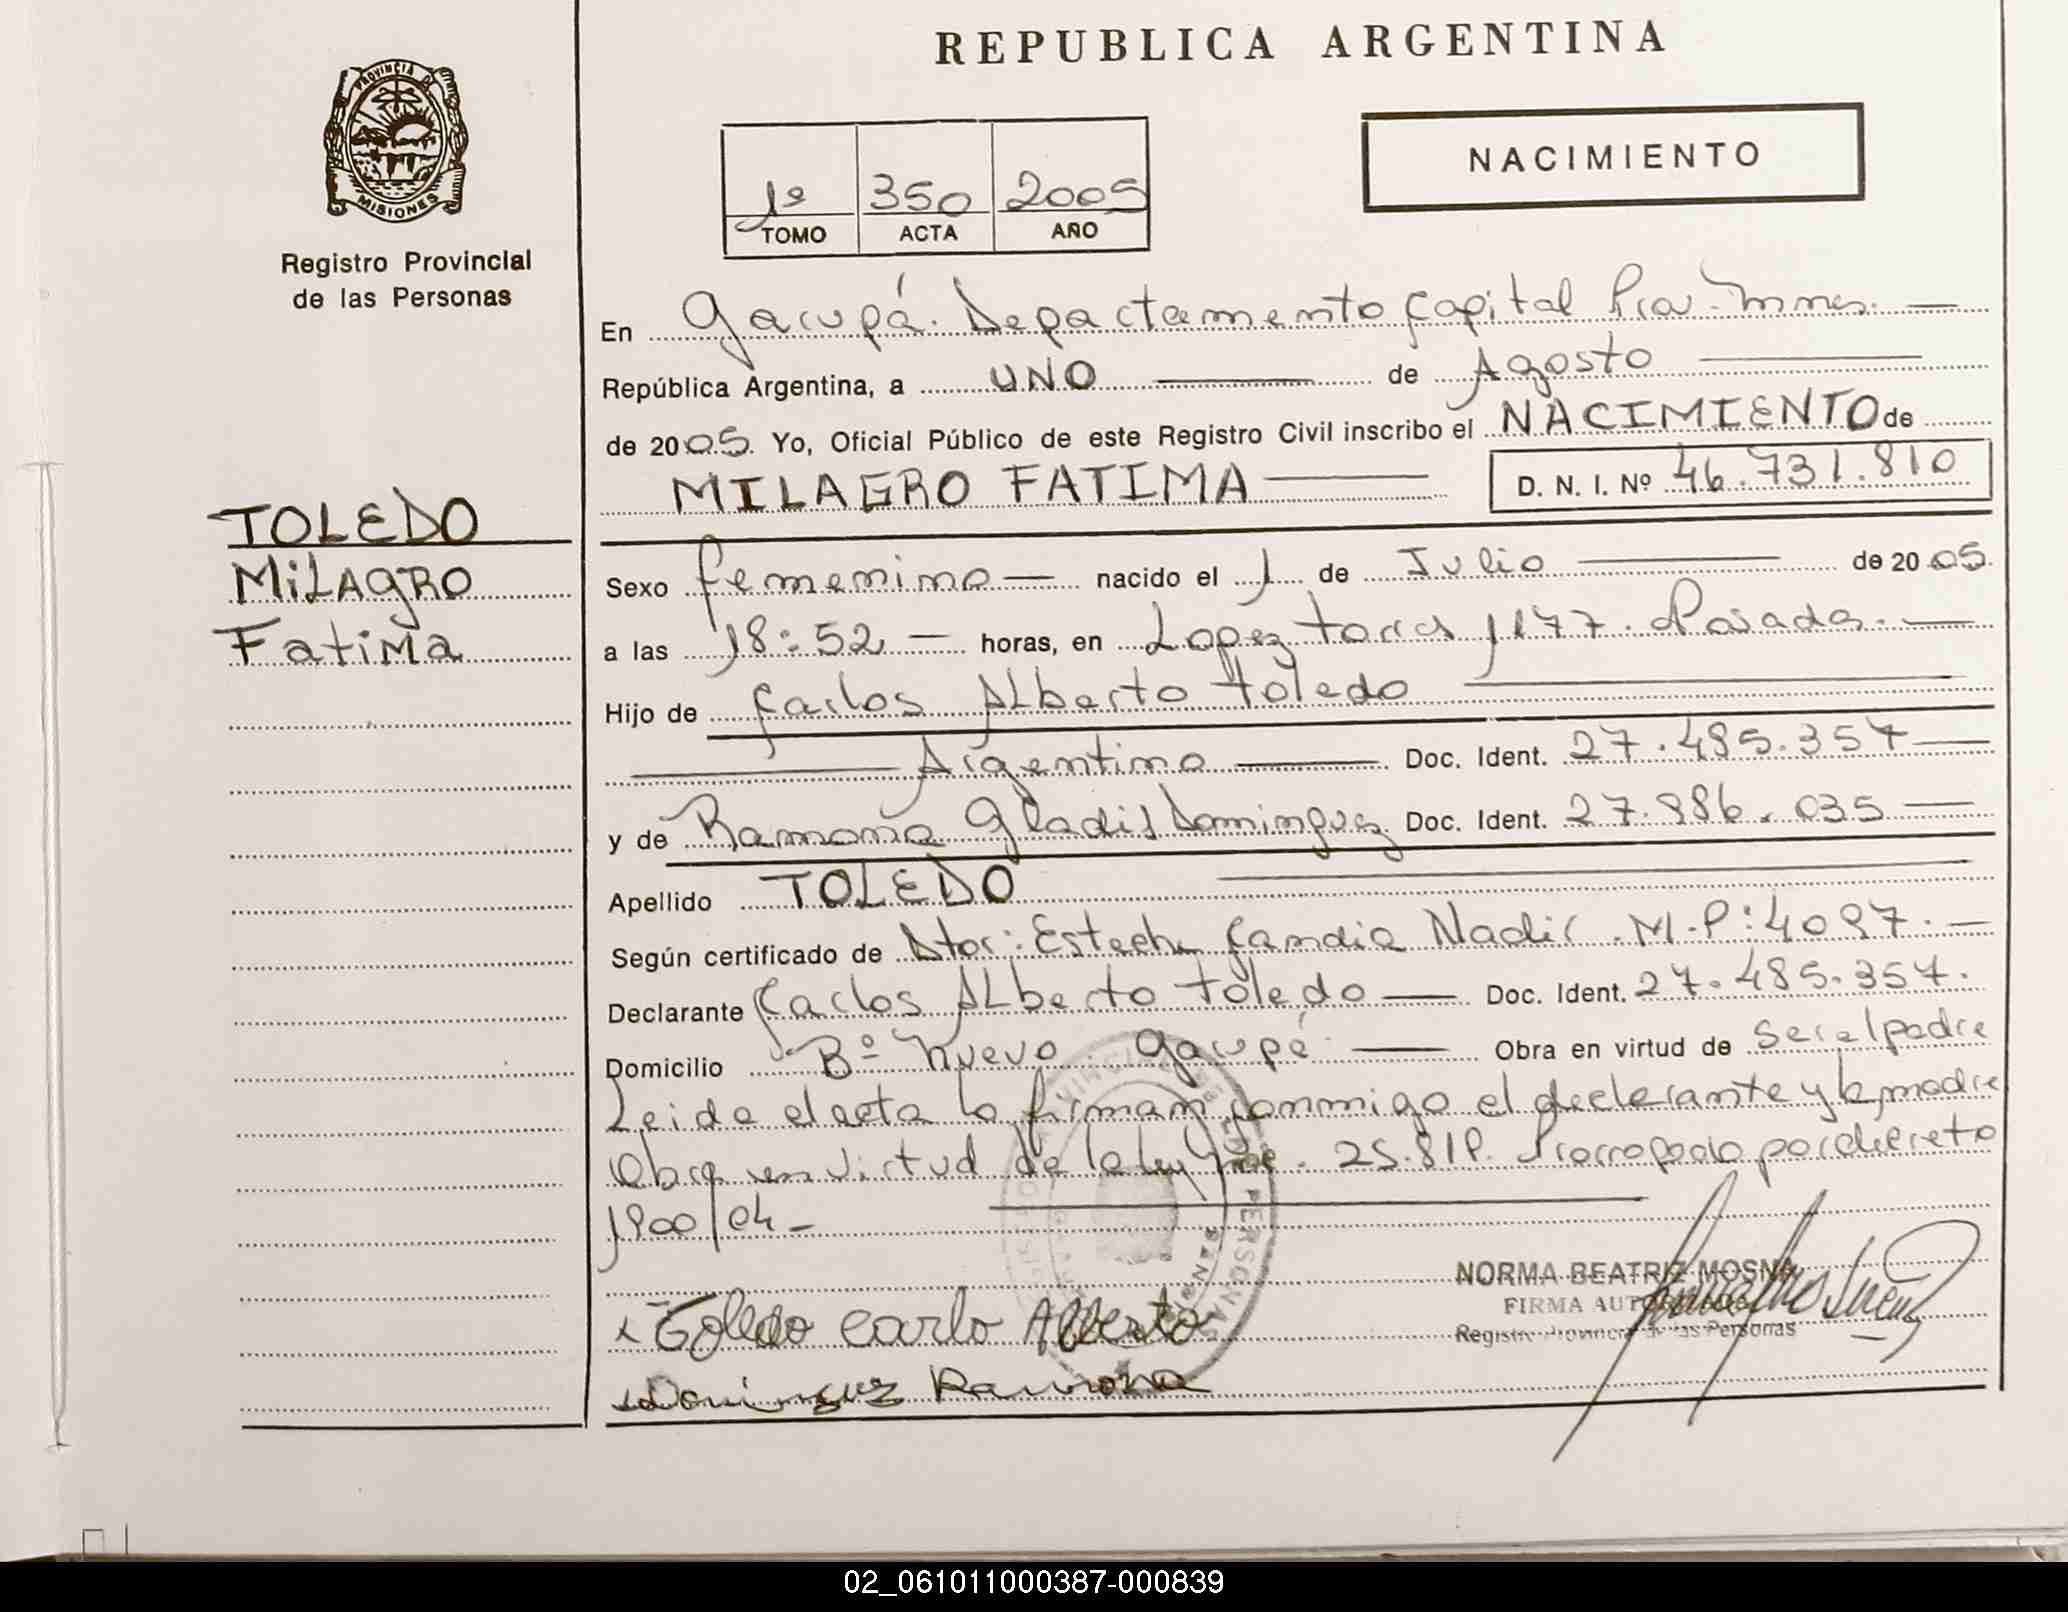 REPUBLICA ARGENTINA
PROVINCIA DE
MISIONES
Registro Provincial
de las Personas
1º 350 2005
TOMO ACTA AÑO
NACIMIENTO
En Garupá. Departamento Capital Prov. Mnes.
República Argentina, a UNO de Agosto
de 2005. Yo, Oficial Público de este Registro Civil inscribo el NACIMIENTO de
MILAGRO FATIMA D. N. I. Nº 46.731.810
TOLEDO
MiLAgRO
FatiMa
Sexo femenino nacido el 1 de Julio de 2005.
a las 18:52 horas, en Lopez Torres 1177. Posadas.
Hijo de Carlos Alberto Toledo
Argentino Doc. Ident. 27.485.357
y de Ramona Gladis Dominguez Doc. Ident. 27.986.035
Apellido TOLEDO
Según certificado de Dtor: Esteche Candia Nadir. M.P: 4097.
Declarante Carlos Alberto Toledo Doc. Ident. 27.485.357.
Domicilio Bº Nuevo. Garupá Obra en virtud de ser el padre
Leida el acta la firman conmigo el declarante y la madre
Obra en virtud de la ley Nº. 25.819. Prorrogado por decreto
1900/04-
NORMA BEATRIZ MOSNA
FIRMA AUTORIZADA
Registro Provincial de las Personas
x Toledo Carlo Alberto
x Dominguez Ramona
02_061011000387-000839